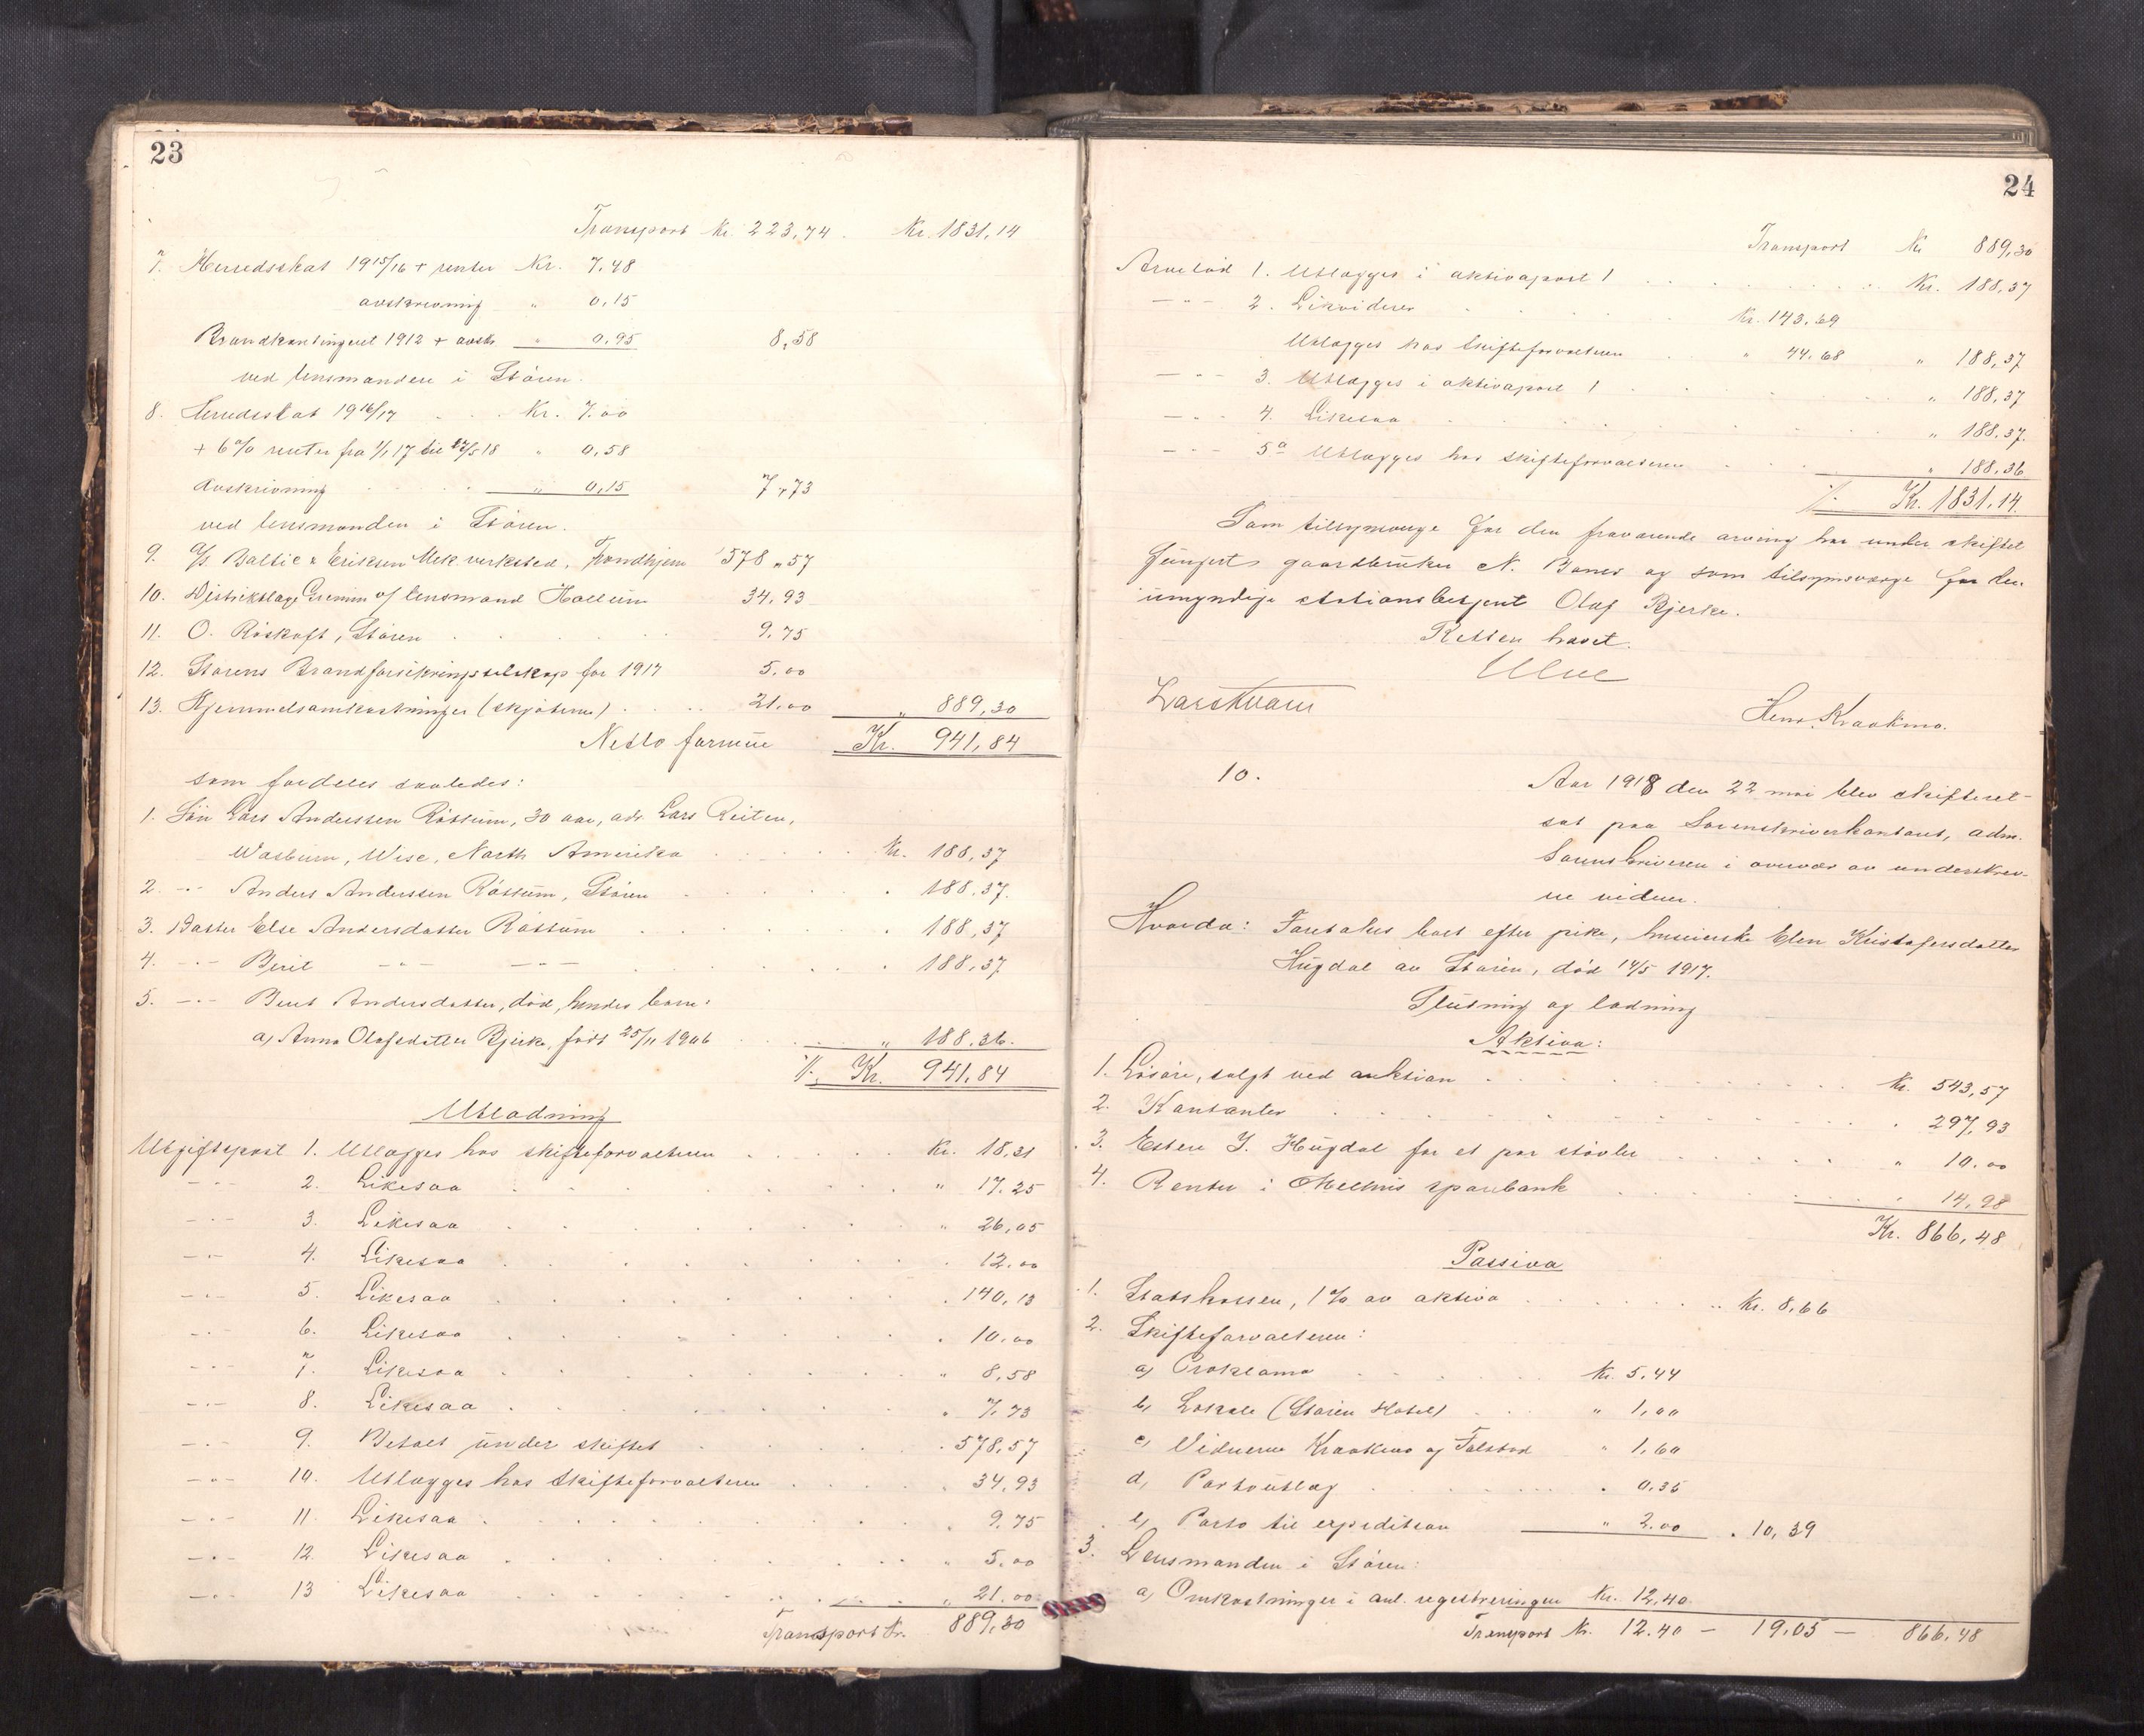 23
Transport Kr. 223,74. Kr. 1831,14
7. Herredsskat 1915/16 + renter Kr. 7,48
avskrivning " 0,15
Brandkontingent 1912 + avsk. " 0,95 8,58
ved lensmanden i Støren.
8. Herredsskat 1916/17 . . Kr. 7.00
+ 6% renter fra 1/1 17 til 27/5 18 " 0,58
Avskrivning . . . " 0,15 7,73
ved lensmanden i Støren.
9. A/s. Baltic & Eriksen Mek. verksted, Trondhjem 578 „ 57
10. Distriktslæge Gremm v/ lensmand Hollum 34,93
11. O. Röskaft, Støren . . . . . 9.75
12. Størens Brandforsikringsselskap for 1917 5.00
13. Hjemmelsomkostninger (skjøterne) . . . . 21.00 " 889,30
Netto formue Kr. 941,84
som fordeles saaledes:
1. Søn Lars Anderssen Røssum, 30 aar, adr. Lars Reiten,
Wasburn, Wisc, North Amerika . . . . . Kr. 188,37
2. -"- Anders Anderssen Røssum, Støren . . . . 188.37.
3. Datter Else Andersdatter Røssum . . . . . 188,37
4. -"- Berit -"- -"- . . . . . 188,37
5. -"- Beret Andersdatter, død, hendes barn:
a) Anna Olafsdatter Bjerke, født 25/11 1906 . . " 188.36.
÷ Kr. 941,84
Utlodning
Utgiftspost 1. Utlægges hos skifteforvalteren . . . . . Kr. 18,31
-"- 2. Likesaa . . . . . " 17.25
-"- 3. Likesaa . . . . . " 26,05
-"- 4. Likesaa . . . . . 12.00
-"- 5. Likesaa . . . . . 140,13
-"- 6. Likesaa . . . . . 10.00
-"- 7. Likesaa . . . . . " 8,58
-"- 8. Likesaa . . . . . 7,73
-"- 9. Betalt under skiftet . . . . 578,57
-"- 10. Utlægges hos Skifteforvalteren . . . . 34,93
-"- 11. Likesaa . . . . . 9,75
-"- 12. Likesaa . . . . . " 5.00
-"- 13 Likesaa . . . . . " 21.00
Transport Kr. 889,30
24
Transport Kr 889,30
Arvelod 1. Utlægges i aktivapost 1 . . . . . Kr. 188,37
-"- 2. Likviderer . . . . Kr. 143,69
Utlægges hos Skifteforvalteren . " 44,68 " 188,37
-"- 3. Utlægges i aktivapost 1 . . . . . " 188,37
-"- 4. Likesaa . . . . . " 188,37.
-"- 5a Utlægges hos skifteforvalteren . . . " 188,36
÷ Kr. 1831,14.
Som tilsynsverge for den fraværende arving har under skiftet
fungert gaardbruker N. Bones og som tilsynsverge for den
umyndige stationsbetjent Olaf Bjerke.
Retten hævet.
Ulve
Lars Kvam
Henr. Kraakmo.
10.
Aar 1918 den 22 mai blev skifteret
sat paa Sorenskriverkontoret, adm.
Sorenskriveren i overvær av underskrev-
ne vidner.
Hvorda: Foretokes boet efter pike, huseierske Elen Kristofersdatter
Hugdal av Støren, død 14/5 1917.
Slutning og lodning
Aktiva:
1. Løsøre, solgt ved auktion . . . . . Kr. 543,57
2. Kontanter . . . . . 297,93
3. Esten J. Hugdal for et par støvler . . . . " 10.00
4. Renter i Melhus sparebank . . . . . 14,98
Kr. 866,48
Passiva
1. Statskassen, 1% av aktiva . . . . . Kr. 8,66
2. Skifteforvalteren:
a) Proklama . . . . Kr. 5,44
b) Lokale (Støren Hotel) . . . " 1,00
c) Vidnerne Kraakmo og Folstad " 1,60
d) Portoutlæg . . . . . 0.35
e) Porto til expedition " 2.00 . 10,39
3. Lensmanden i Støren:
a) Omkostninger i anl. registreringen Kr. 12,40
Transport Kr. 12.40 — 19,05 — 866,48